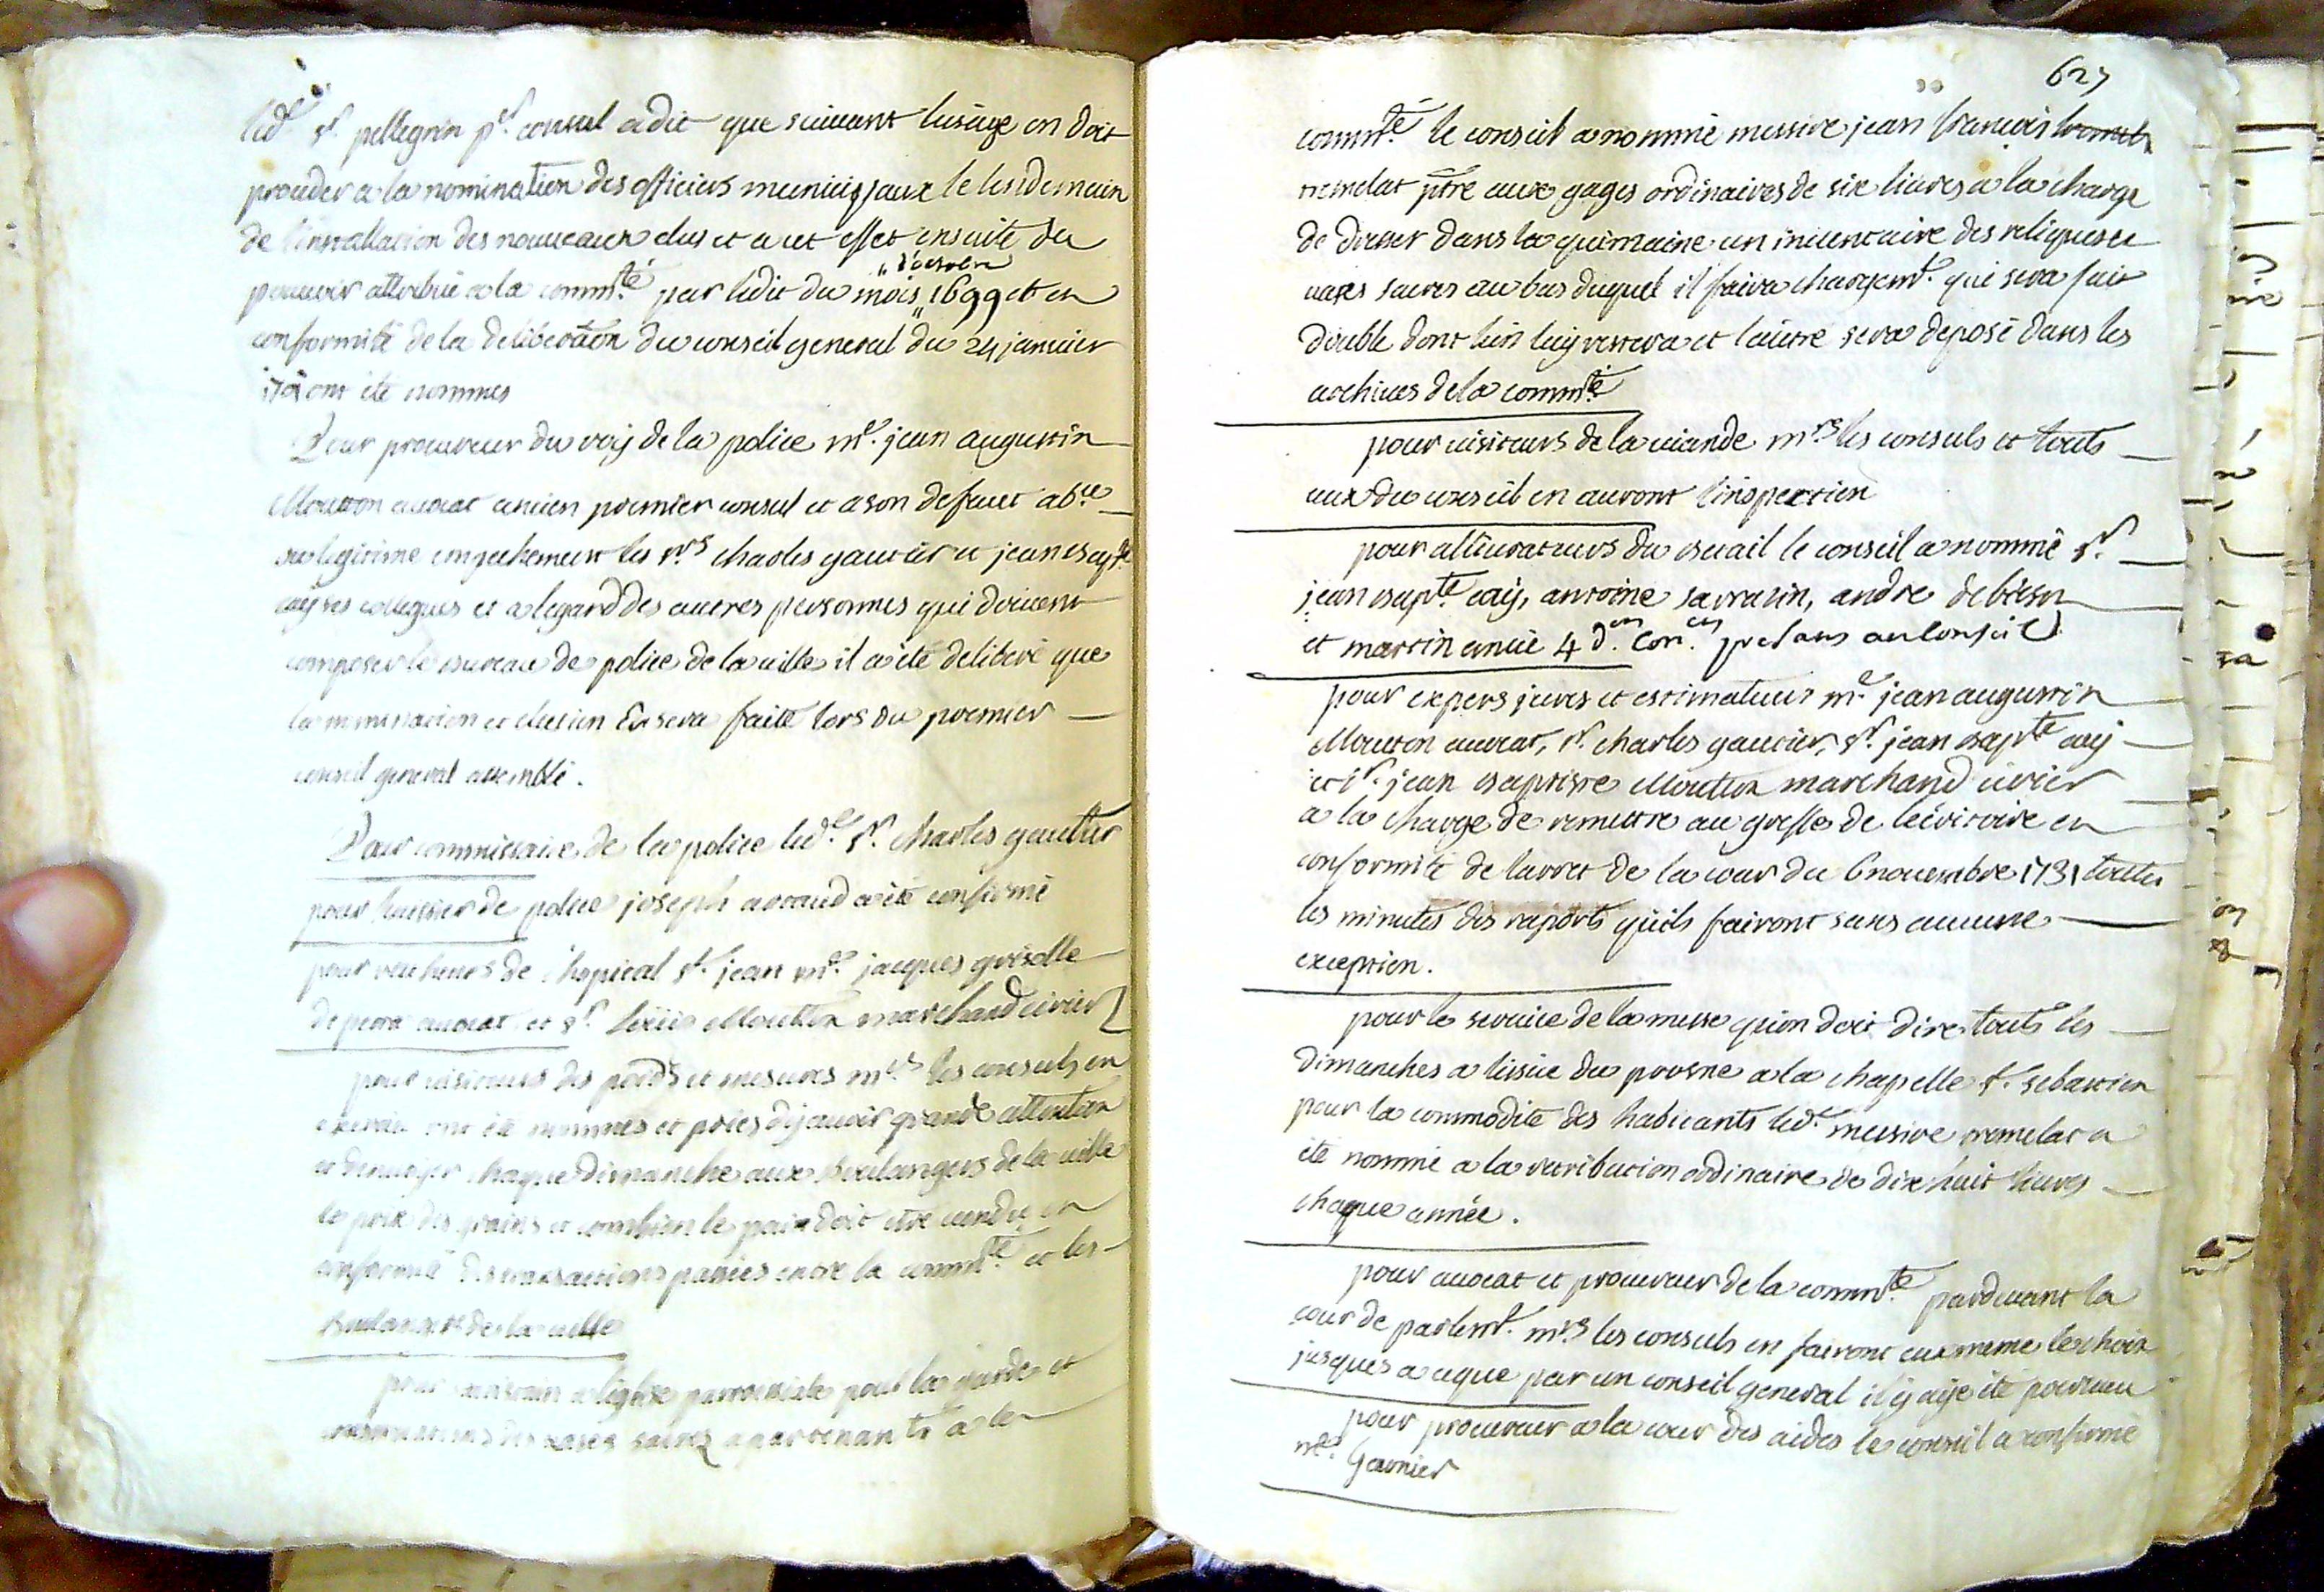 led.t s.r pellegrin p.er consul a dit que suivant lusage on doit
proceder a la nomination des officiers municipaux le lendemain
de l'installation des nouveaux elus et a cet effet ensuite du
pouvoir attribué a la comm.té par ledit du mois "d'octobre" 1699 et en
conformité de la deliberation du conseil general du 24 janvier
ont été nommés
Pour procureur du roy de la police m.e jean augustin
Moutton avocat ancien premier consul et a son defaut ab.ce
ou legitime empechement les s.rs charles gautier et jean bap.te
ses collegues et a legard des autres personnes qui doivent
composer le bureau de police de la ville il a été deliberé que
la nomination et election en sera faite lors du premier
conseil general assemblé.
Pour commissaire de la police led.t s.r Charles gautier
pour huissier de police joseph arnaud a été confirmé
pour recteurs de l'hopital s.t jean m.e jacques griselle
avocat et s.r Moutton marchand cirier
pour visiteurs des poids et mesures m.rs les consuls en
exercice ont été nommés et priés d'y avoir grande attention
et d'envoyer chaque dimanche aux boulangers de la ville
le prix des grains et combien le pain doit etre vendu en
conformité des transactions passées entre la comm.té et les
boulangers de la ville
pour a léglise parroissiale pour la garde et
conservation des vases sacrez apartenants a la
627
comm.té le conseil a nommé messire jean françois
tremelat p̃tre aux gages ordinaires de six livres a la charge
de dresser dans la quinzaine un inventaire des reliques et
vases sacrés au bas duquel il faira chargem.t qui sera fait
double dont lun luy restera et lautre sera deposé dans les
archives de la comm.té
pour visiteurs de la viande m.rs les consuls et touts
ceux du conseil en auront l'inspection
pour du betail le conseil a nommé s.r
jean bap.te antoine sarrasin, andre
et martin 4 d. con. presans au conseil
pour expers jurés et estimateurs m.e jean augustin
Moutton avocat, s.r charles gautier, s.r jean bap.te
et s.r jean baptiste Moutton marchand cirier
a la charge de remettre au greffe de lécritoire en
conformité de larret de la cour du 6 novembre 1731 toutes
les minutes des raports quils fairont sans aucune
exception.
pour le service de la messe quon doit dire touts les
dimanches a lissüe du prosne a la chapelle s.t sebastien
pour la commodité des habitants led.t messire tremelat a
été nommé a la retribution ordinaire de dix huit livres
chaque année.
pour avocat et procureur de la comm.té pardevant la
cour de parlem.t m.rs les consuls en fairont eux meme le choix
jusques a ce que par un conseil general il y aye été pourveu
pour procureur a la cour des aides le conseil a confirmé
m.e Garnier